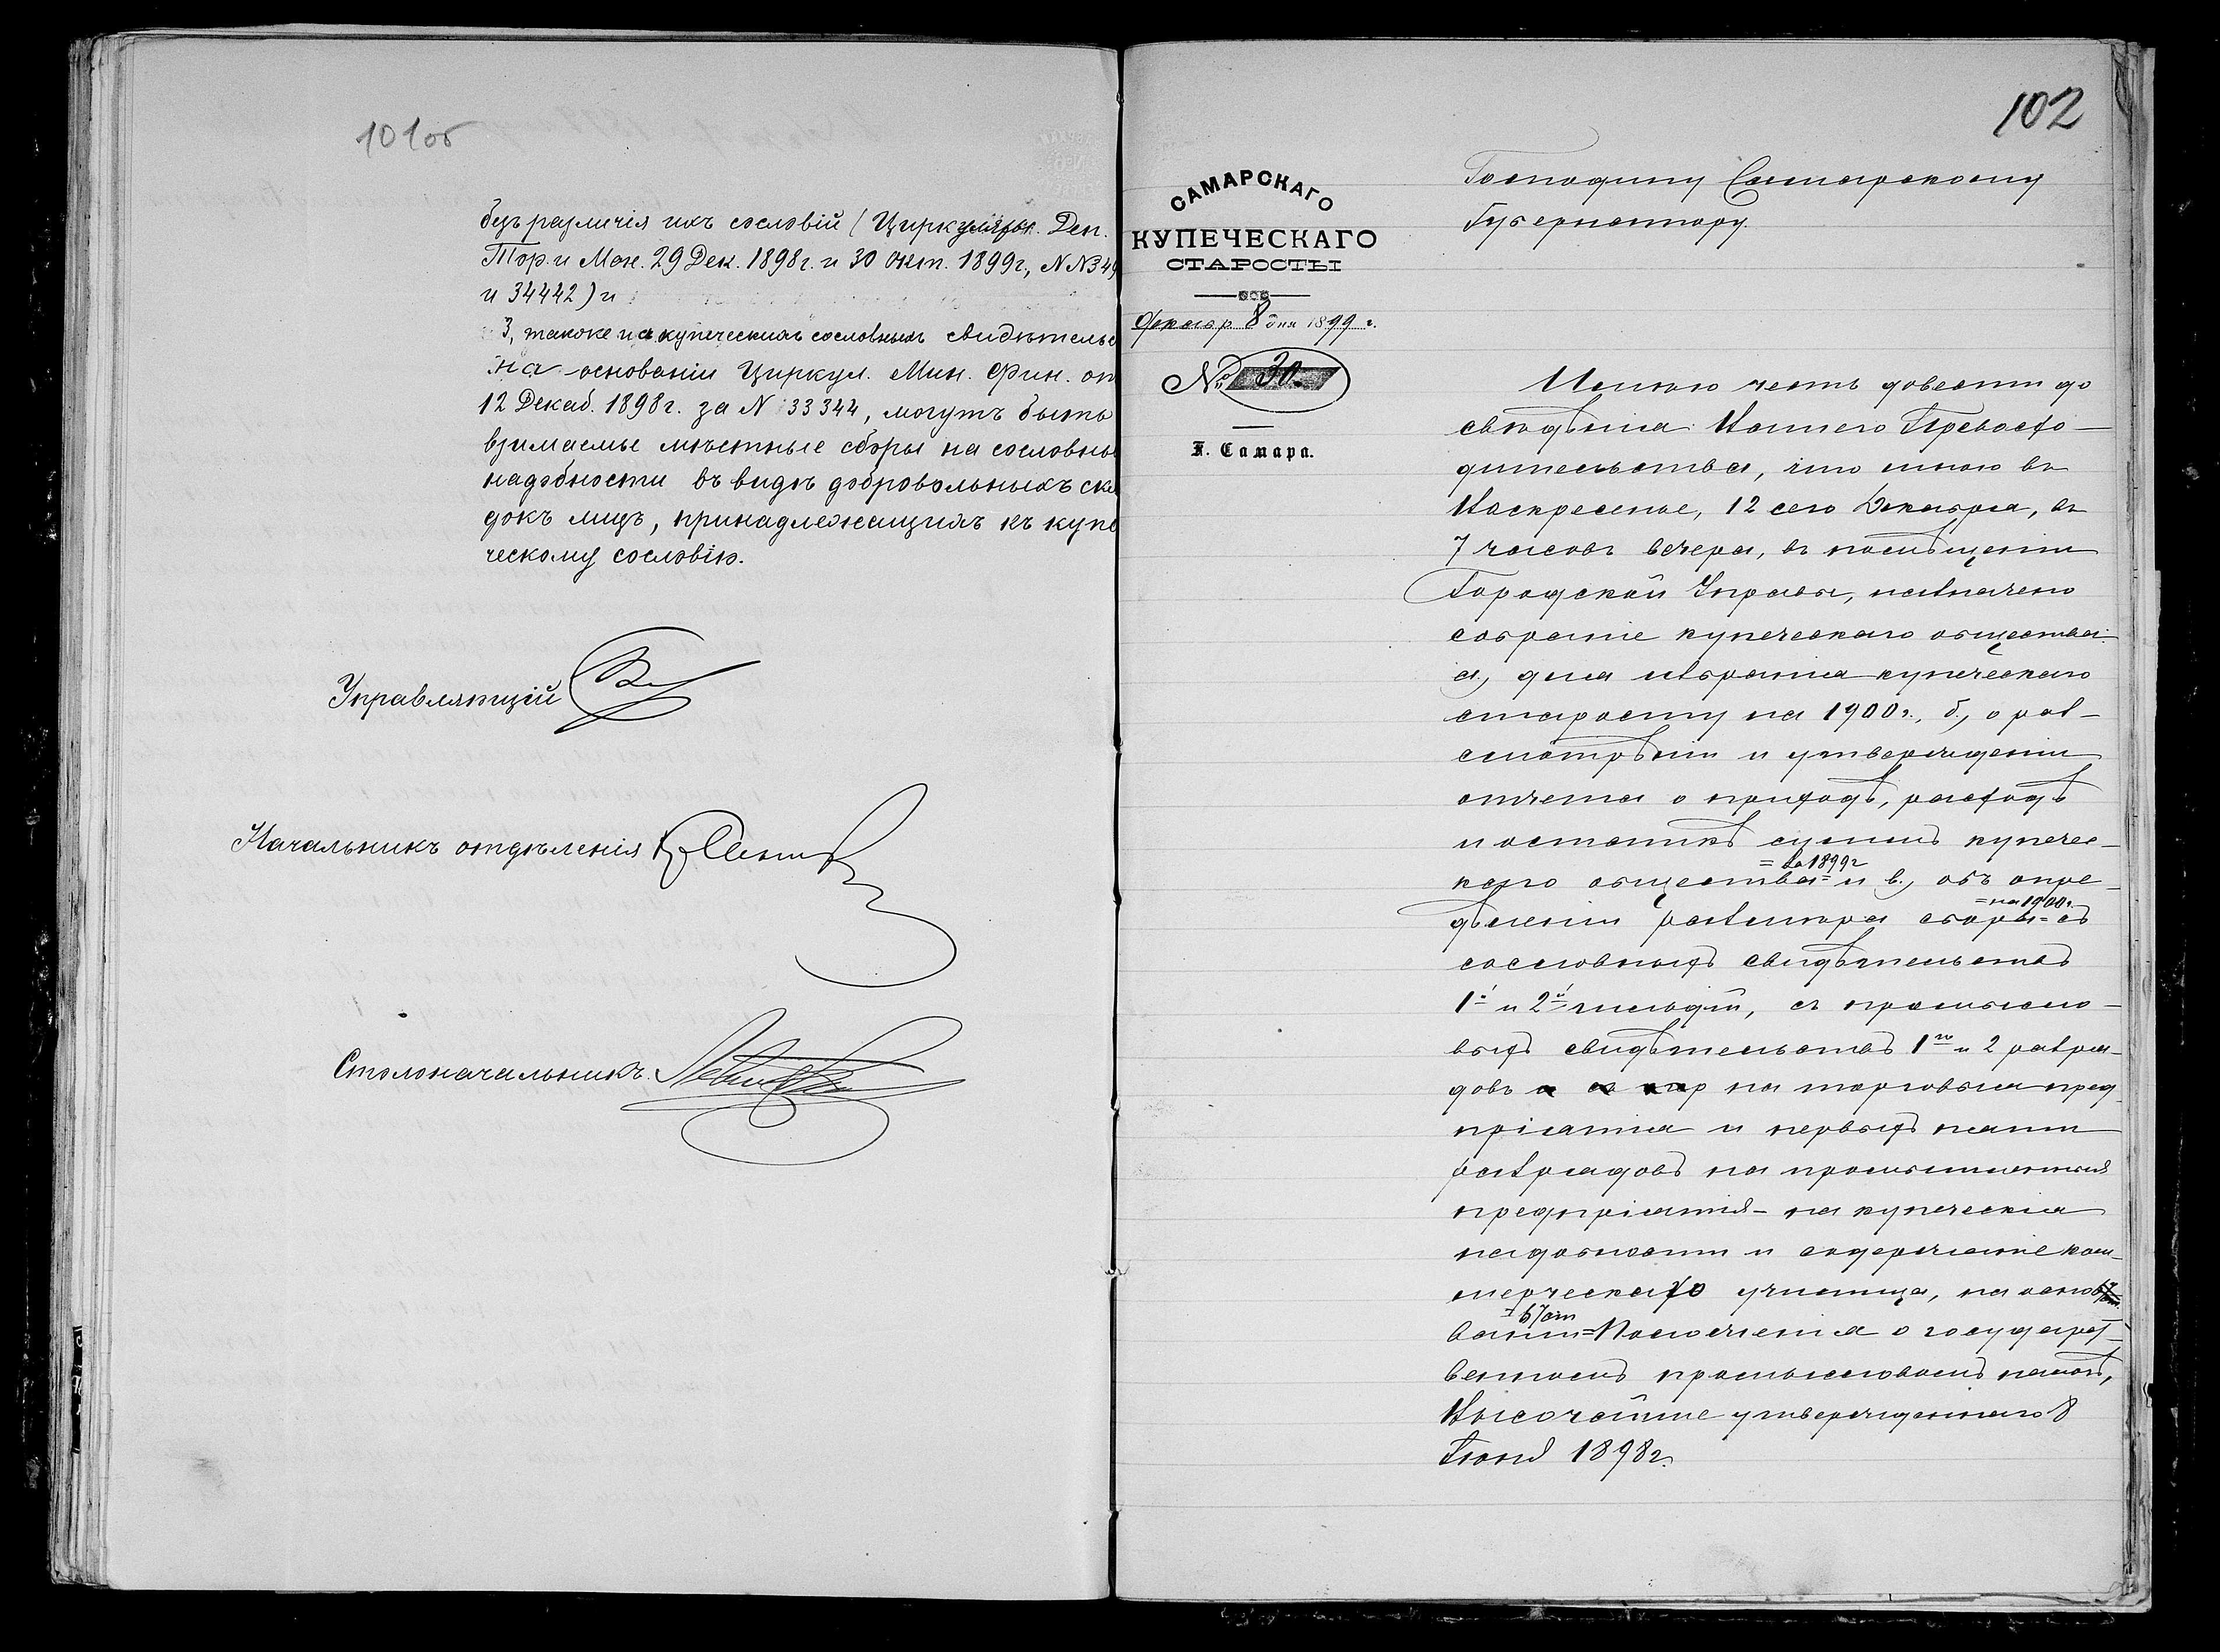 101об
безъ различія ихъ сословій (Циркуляръ. Деп.
Тор. и Ман. 29 Дек. 1898 г. и 30 Окт. 1899 г., NN 349
и 34442) и
3, также и съ купеческихъ сословныхъ свидѣтельс
на основаніи Циркул. Мин. Фин. от
12 Декаб. 1898 г. за N 33344, могутъ быть
взимаемы мѣстные сборы на сословны
надобности въ видѣ добровольныхъ скл
докъ лицъ, принадлежащихъ къ купе
ческому сословію.
Управляющій
Начальникъ отдѣленія
Столоначальникъ.
102
САМАРСКАГО
КУПЕЧЕСКАГО
СТАРОСТЫ
Декабр. 8 дня 1899 г.
№ 30.
Г. Самара.
Господину Самарскому
Губернатору.
Имѣю честь довести до
свѣдѣнія Вашего Превосхо-
дительства, что мною въ
Воскресенье, 12 сего Декабря, въ
7 часовъ вечера, въ помѣщеніи
Городской Управы, назначено
собраніе купеческаго общества:
а., для избранія купеческаго
старосту на 1900 г., б., о раз-
смотрѣніи и утвержденіи
отчета о приходѣ, расходѣ
и остаткѣ суммъ купечес-
=за 1899 г
каго общества= и в., объ опре-
=на 1900 г.
дѣленіи размѣра сбора= съ
сословныхъ свидѣтельствъ
1й и 2й гильдій, съ промысло-
выхъ свидѣтельствъ 1го и 2 разря-
довъ на торговыя пред-
пріятія и первыхъ пяти
разрядовъ на промышленныя
предпріятія - на купеческія
надобности и содержаніе ком-
мерческаго училища, на осно
=67 ст
ваніи= Положенія о государст-
венномъ промысловомъ налогѣ,
Высочайше утвержденнаго 8
Іюня 1898 г.